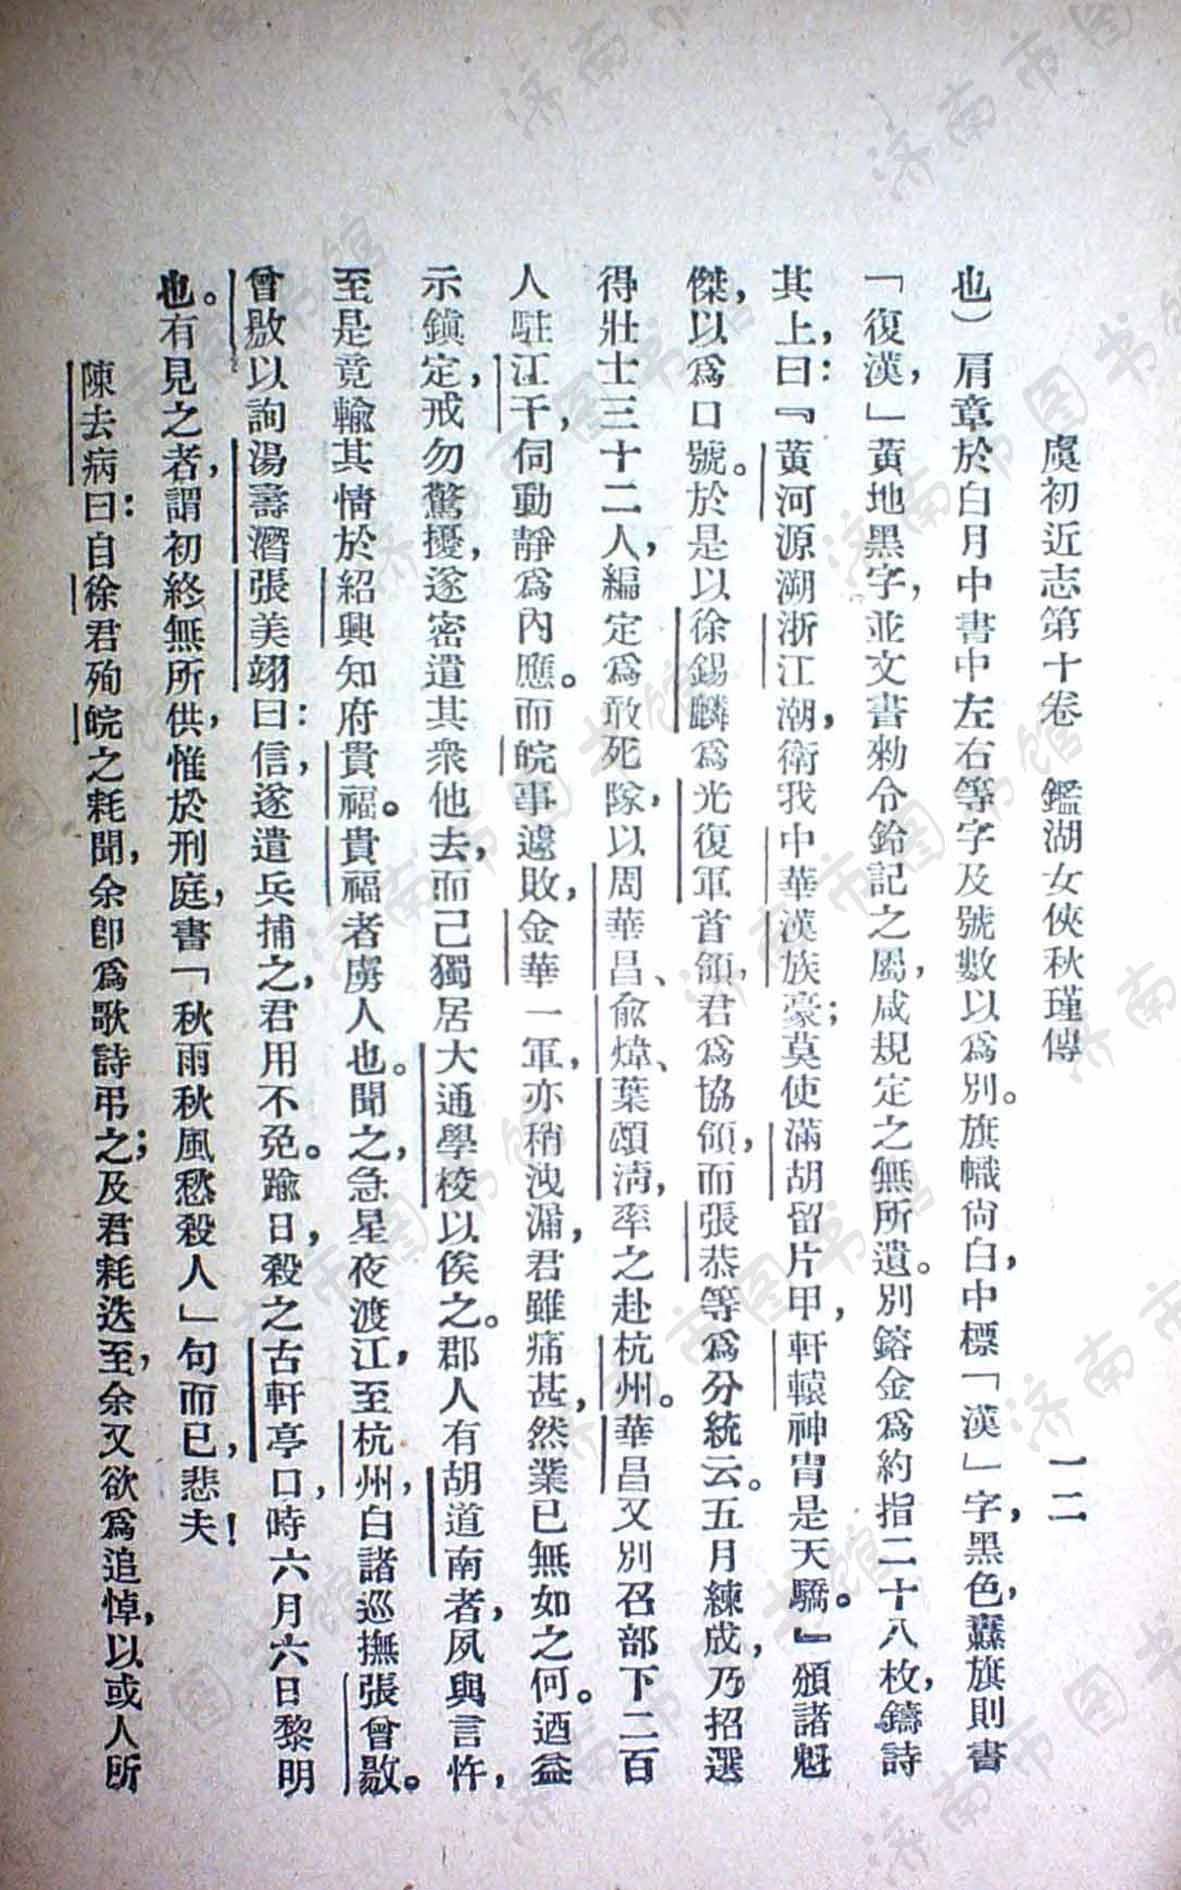 虞初近志第十卷　鑑湖女俠秋瑾傳　一二
也）肩章於白月中書中左右等字及號數以爲別。旗幟尙白，中標「漢」字，黑色，纛旗則書
「復漢，」黃地黑字，並文書勑令鈐記之屬，咸規定之無所遺。別鎔金爲約指二十八枚，鑄詩
其上，曰：『黃河源溯浙江潮，衞我中華漢族豪；莫使滿胡留片甲，軒轅神冑是天驕。』頒諸魁
傑，以爲口號。於是以徐錫麟爲光復軍首領，君爲協領，而張恭等爲分統云。五月練成，乃招選
得壯士三十二人，編定爲敢死隊，以周華昌、俞煒、葉頌淸，率之赴杭州。華昌又別召部下二百
人駐江干，伺動靜爲內應。而皖事遽敗，金華一軍，亦稍洩漏，君雖痛甚，然業已無如之何。迺益
示鎭定，戒勿驚擾，遂密遣其衆他去，而己獨居大通學校以俟之。郡人有胡道南者，夙與言忤，
至是竟輸其情於紹興知府貴福。貴福者虜人也。聞之，急星夜渡江，至杭州，白諸巡撫張曾敭。
曾敭以詢湯壽潛張美翊曰：信，遂遣兵捕之，君用不免。踰日，殺之古軒亭口，時六月六日黎明
也。有見之者，謂初終無所供，惟於刑庭，書「秋雨秋風愁殺人」句而已，悲夫！
陳去病曰：自徐君殉皖之耗聞，余卽爲歌詩弔之；及君耗迭至，余又欲爲追悼，以或人所
济南市图书馆